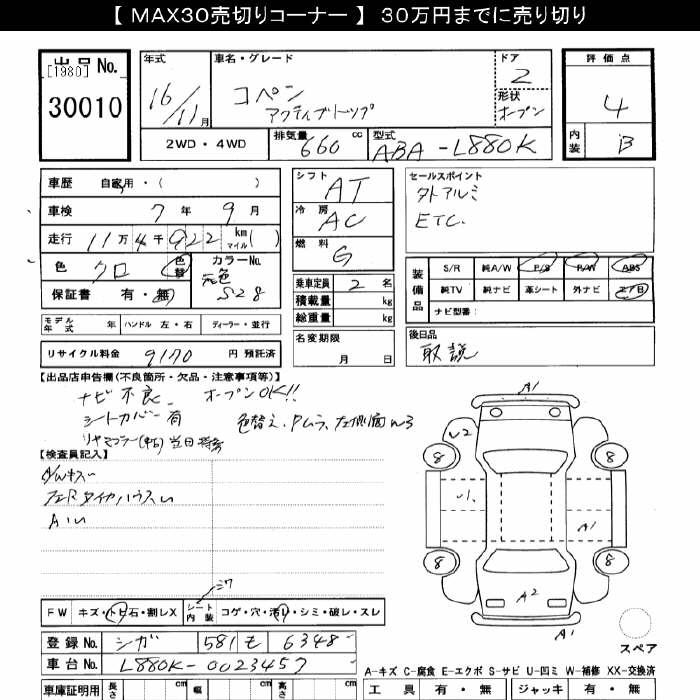 【 MAX30売切りコーナー 】 30万円までに売り切り
出品 No.
[1980]
30010
年式
16/11月
車名・グレード
コペン
アクティブトップ
ドア
2
形状
オープン
評価点
4
内装
B
2WD・4WD
排気量 660 cc
型式 ABA-L880K
車歴 自家用・( )
車検 7年 9月
走行 11万4千922 km マイル( )
色 クロ 色替
カラーNo. 元色 S28
保証書 有・無
モデル年式 年 ハンドル 左・右 ディーラー・並行
リサイクル料金 9170 円 預託済
シフト AT
冷房 AC
燃料 G
乗車定員 2 名
積載量 kg
総重量 kg
名変期限
月 日
セールスポイント
外アルミ
ETC.
装備品
S/R 純A/W P/S P/W ABS
純TV 純ナビ 革シート 外ナビ エアB
ナビ型番:
後日品
取説
【出品店申告欄(不良箇所・欠品・注意事項等)】
ナビ不良. オープンOK!!
シートカバー有 色替え.Pムラ.左側面W3
リヤマフラー(中古)当日持参
【検査員記入】
A/Wキズ
A1 U2 8 8 A1 8 8 A2 A1
FW キズ・トビ石・割レX シート内装 コゲ・穴・汚レ・シミ・破レ・スレ
登録No. シガ 581 モ 6348
車台No. L880K-0023457
スペア
A-キズ C-腐食 E-エクボ S-サビ U-凹ミ W-補修 XX-交換済
車庫証明用 長さ cm 幅 cm 高さ cm
工具 有・無 ジャッキ 有・無